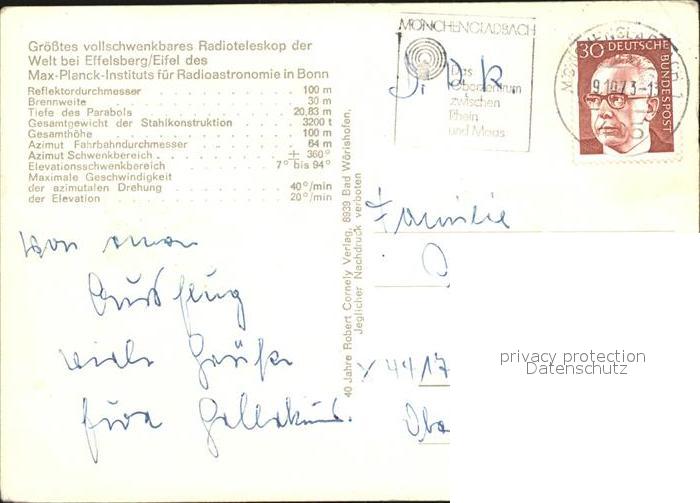 Größtes vollschwenkbares Radioteleskop der
Welt bei Effelsberg/Eifel des
Max-Planck-Instituts für Radioastronomie in Bonn
Reflektordurchmesser 100 m
Brennweite 30 m
Tiefe des Parabols 20,83 m
Gesamtgewicht der Stahlkonstruktion 3200 t
Gesamthöhe 100 m
Azimut Fahrbahndurchmesser 64 m
Azimut Schwenkbereich ± 360°
Elevationsschwenkbereich 7° bis 94°
Maximale Geschwindigkeit
der azimutalen Drehung 40°/min
der Elevation 20°/min
Von einem
Ausflug
viele Grüße
40 Jahre Robert Cornely Verlag, 8939 Bad Wörishofen.
Jeglicher Nachdruck verboten
MÖNCHENGLADBACH
Das
Oberzentrum
zwischen
Rhein
und Maas
MÖNCHENGLADBACH 1
30 DEUTSCHE
BUNDESPOST
Familie
44/17
privacy protection
Datenschutz